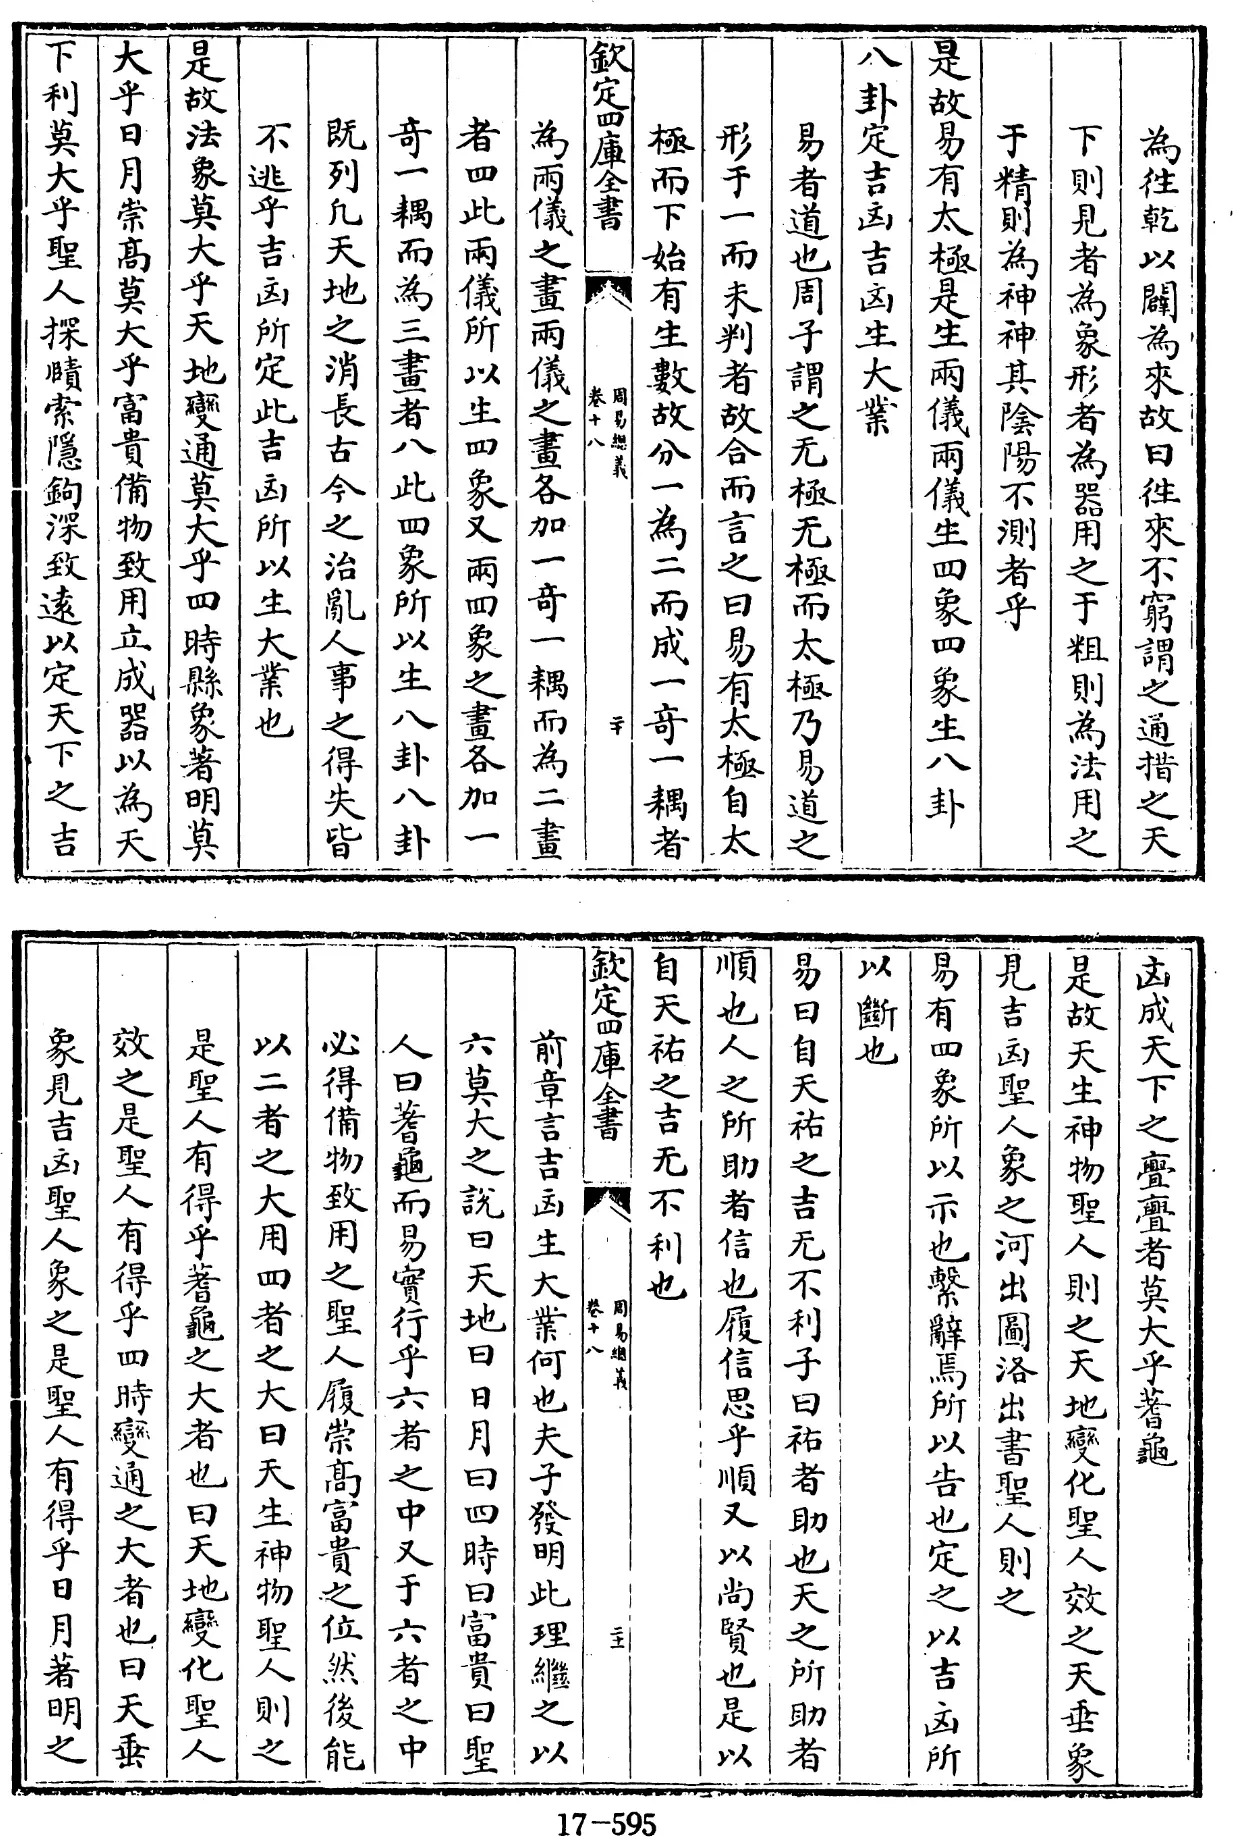 為徃乾以闢為來故曰徃來不窮謂之通措之天
下則見者為象形者為器用之于粗則為法用之
于精則為神神其陰陽不測者乎
是故易有太極是生兩儀兩儀生四象四象生八卦
八卦定吉凶吉凶生大業
易者道也周子謂之无極无極而太極乃易道之
形于一而未判者故合而言之曰易有太極自太
極而下始有生數故分一為二而成一奇一耦者
欽定四庫全書
周易總義
卷十八
二十
為兩儀之畫兩儀之畫各加一奇一耦而為二畫
者四此兩儀所以生四象又兩四象之畫各加一
奇一耦而為三畫者八此四象所以生八卦八卦
既列凡天地之消長古今之治亂人事之得失皆
不逃乎吉凶所定此吉凶所以生大業也
是故法象莫大乎天地變通莫大乎四時縣象著明莫
大乎日月崇高莫大乎富貴備物致用立成器以為天
下利莫大乎聖人探賾索隱鉤深致遠以定天下之吉
凶成天下之亹亹者莫大乎蓍龜
是故天生神物聖人則之天地變化聖人效之天垂象
見吉凶聖人象之河出圖洛出書聖人則之
易有四象所以示也繫辭焉所以告也定之以吉凶所
以斷也
易曰自天祐之吉无不利子曰祐者助也天之所助者
順也人之所助者信也履信思乎順又以尚賢也是以
自天祐之吉无不利也
欽定四庫全書
周易總義
卷十八
二十一
前章言吉凶生大業何也夫子發明此理繼之以
六莫大之説曰天地曰日月曰四時曰富貴曰聖
人曰蓍龜而易實行乎六者之中又于六者之中
必得備物致用之聖人履崇高富貴之位然後能
以二者之大用四者之大曰天生神物聖人則之
是聖人有得乎蓍龜之大者也曰天地變化聖人
效之是聖人有得乎四時變通之大者也曰天垂
象見吉凶聖人象之是聖人有得乎日月著明之
17-595